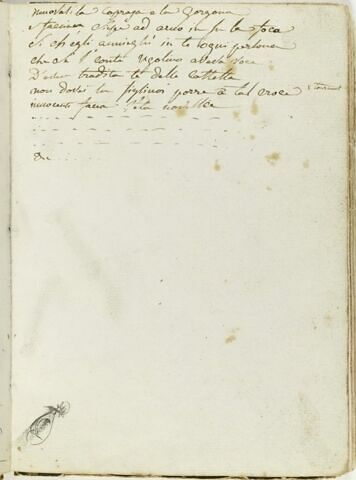 muovasi la Capraja e la Gorgona
e faccian siepe ad arno in su la foca
si ch'egli annieghi in te ogni persona
che se l' conte Ugolino aveva voce
D'aver tradita te delle Castella
non dovei tu figliuoi porre a tal croce
innocenti facea l'età novella
&c